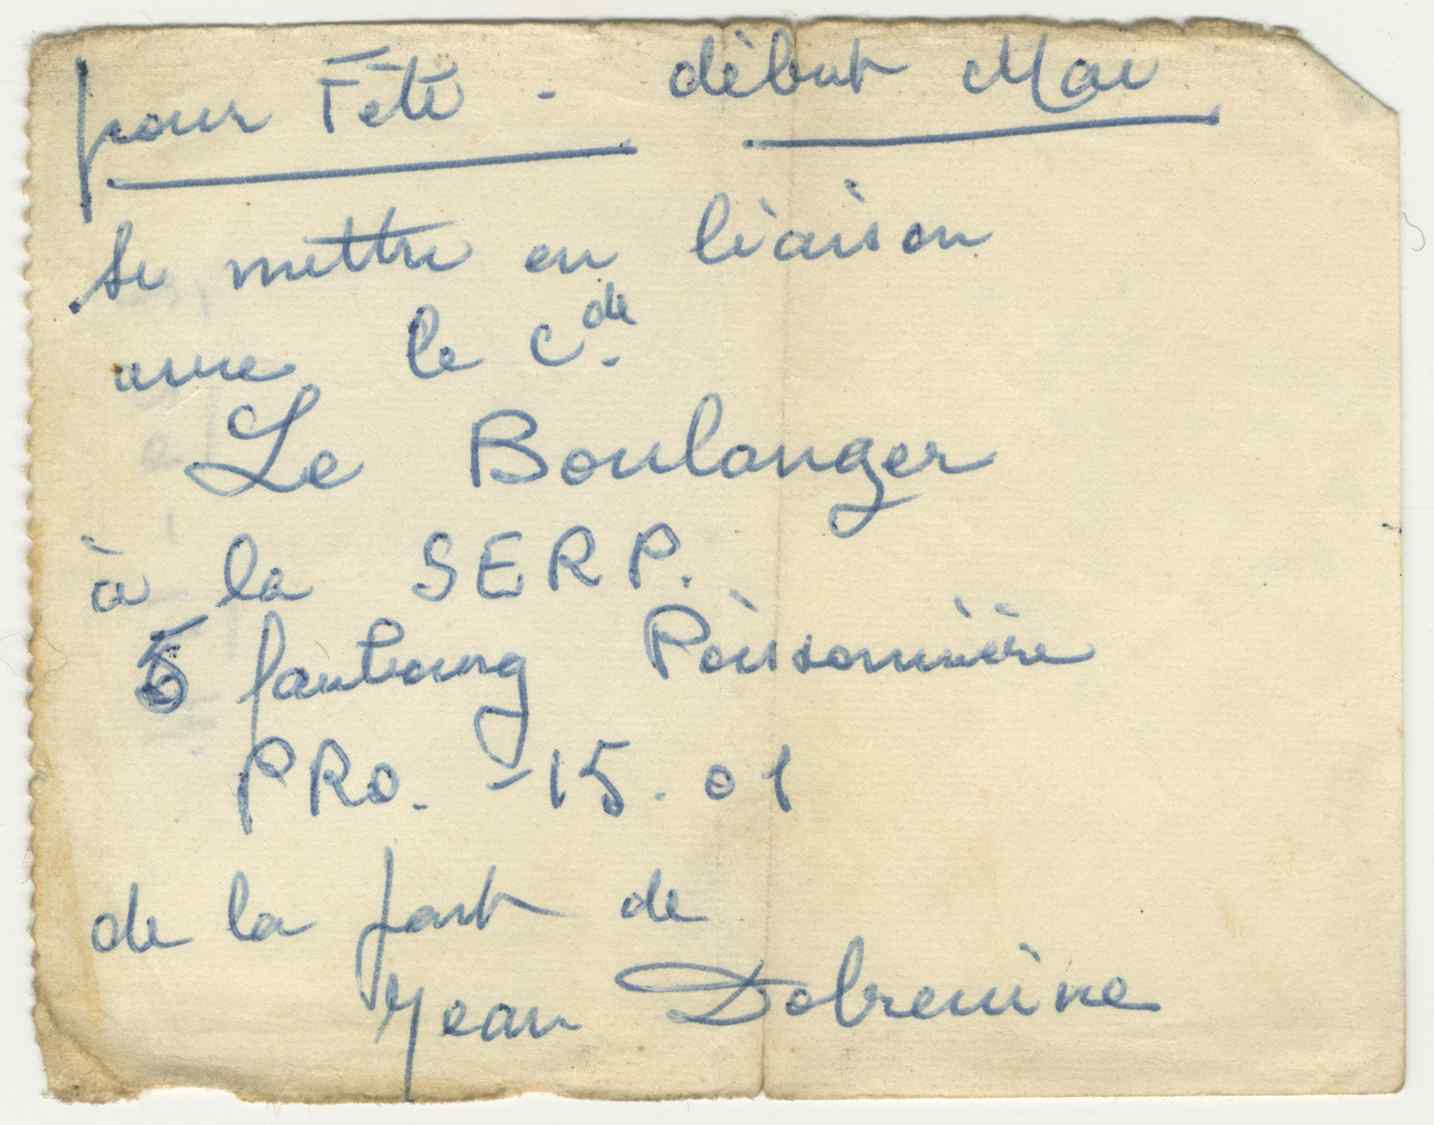 pour Fête - début Mai
se mettre en liaison
avec le Cde.
Le Boulanger
à la SERP.
5 faubourg Poissonnière
PRO. - 15. 01
de la part de
Jean